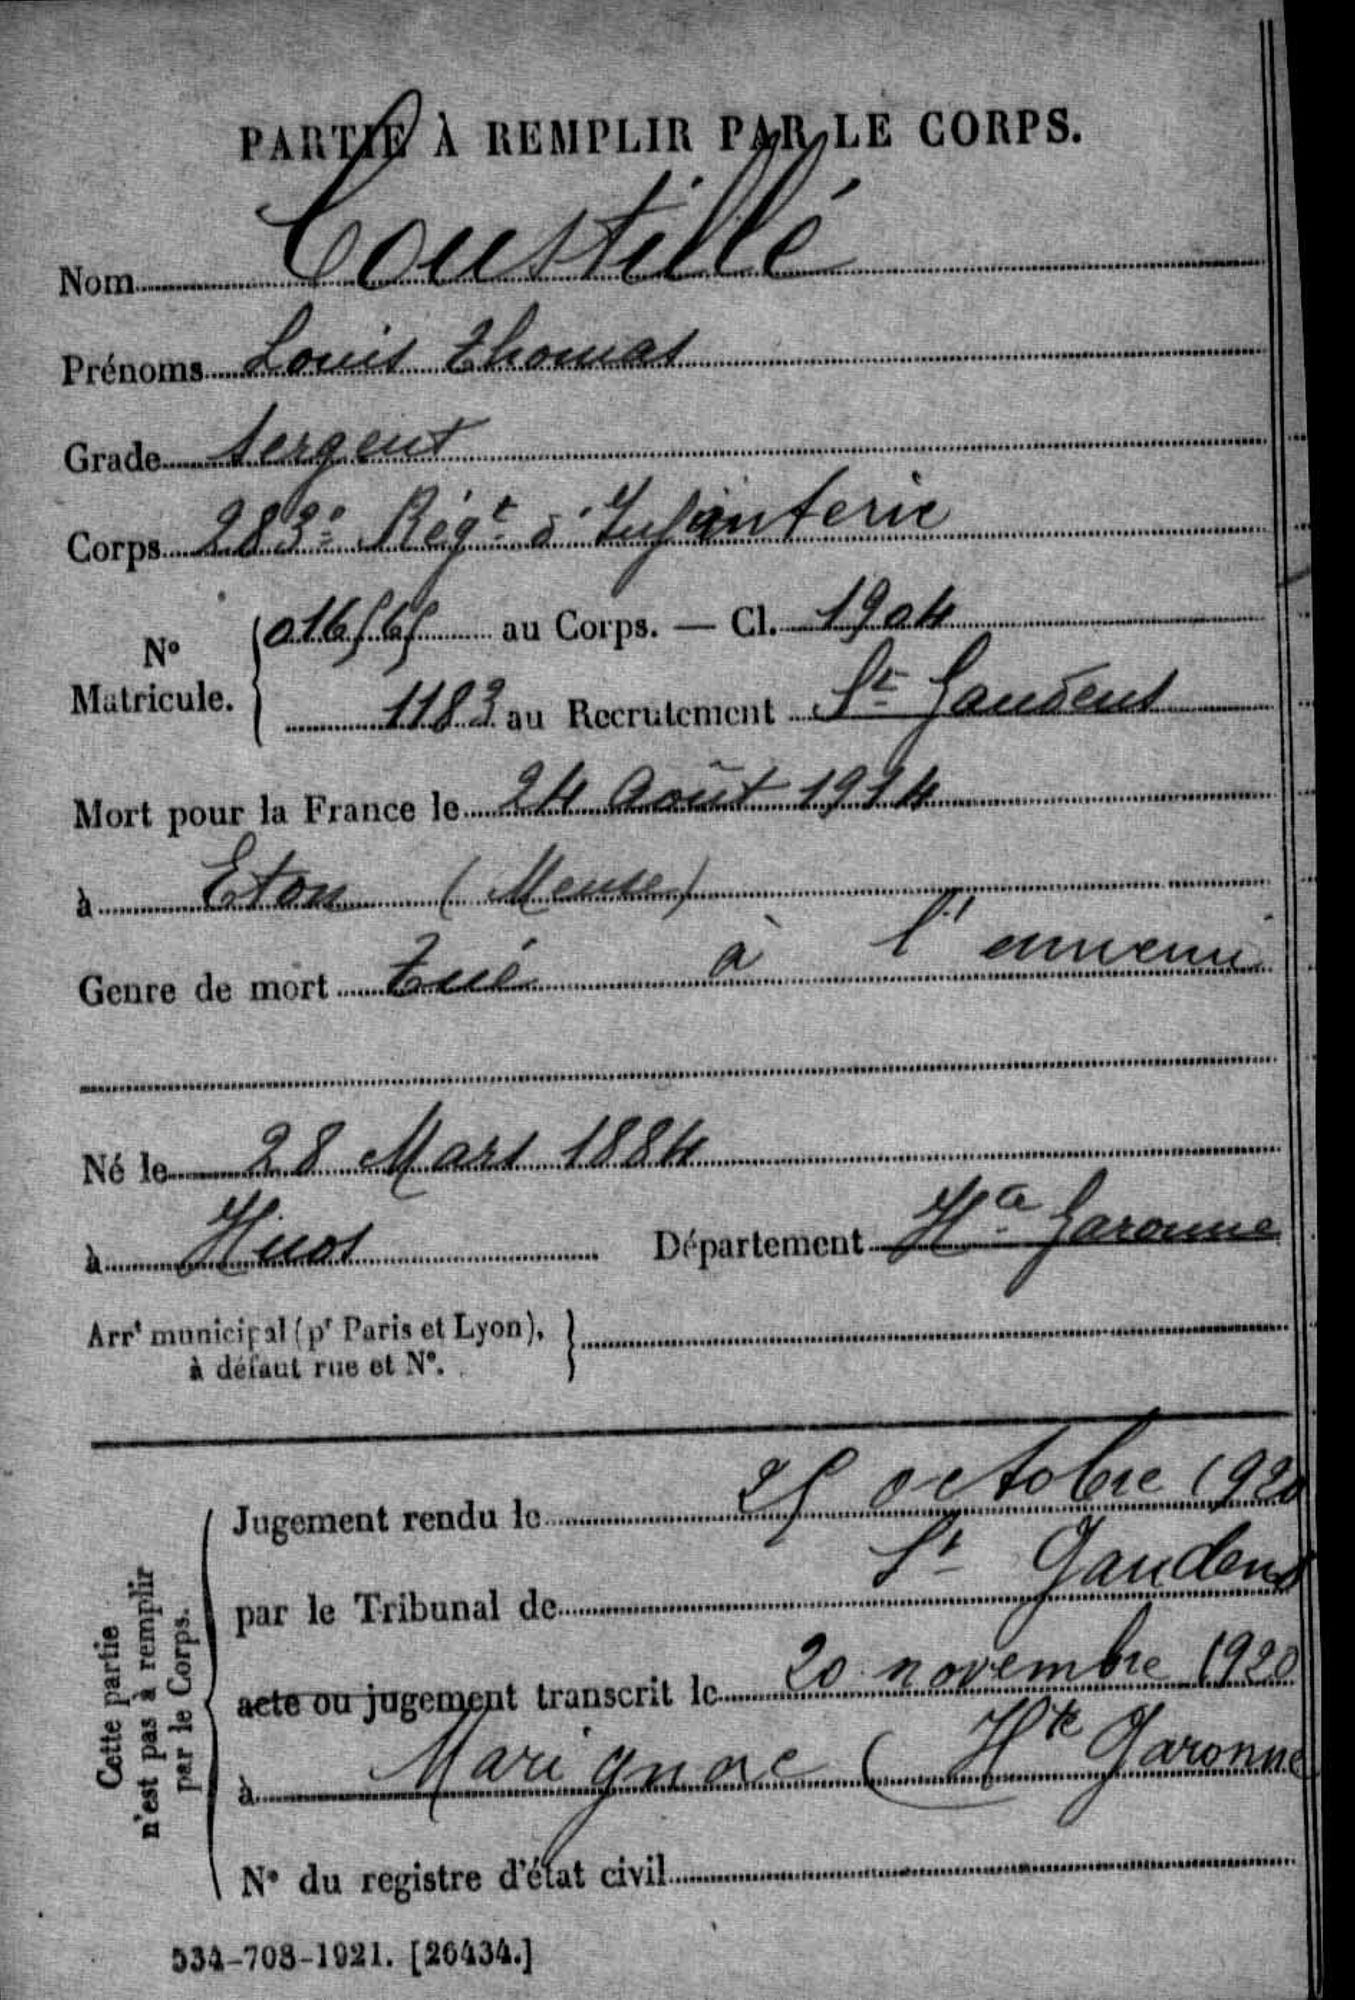 PARTIE À REMPLIR PAR LE CORPS.
Nom Coustillé
Prénoms Louis Thomas
Grade Sergent
Corps 283e Régt d'Infanterie
No Matricule. { 016565 au Corps. — Cl. 1904
1183 au Recrutement St Gaudens
Mort pour la France le 24 Août 1914
à Eton (Meuse)
Genre de mort Tué à l'ennemi
Né le 28 Mars 1884
à Huos Département Hte Garonne
Arrt municipal (pr Paris et Lyon), }
à défaut rue et No.
Cette partie
n'est pas à remplir
par le Corps.
Jugement rendu le 25 octobre 1920
par le Tribunal de St Gaudens
acte ou jugement transcrit le 20 novembre 1920
à Marignac (Hte Garonne
No du registre d'état civil
534-708-1921. [26434.]